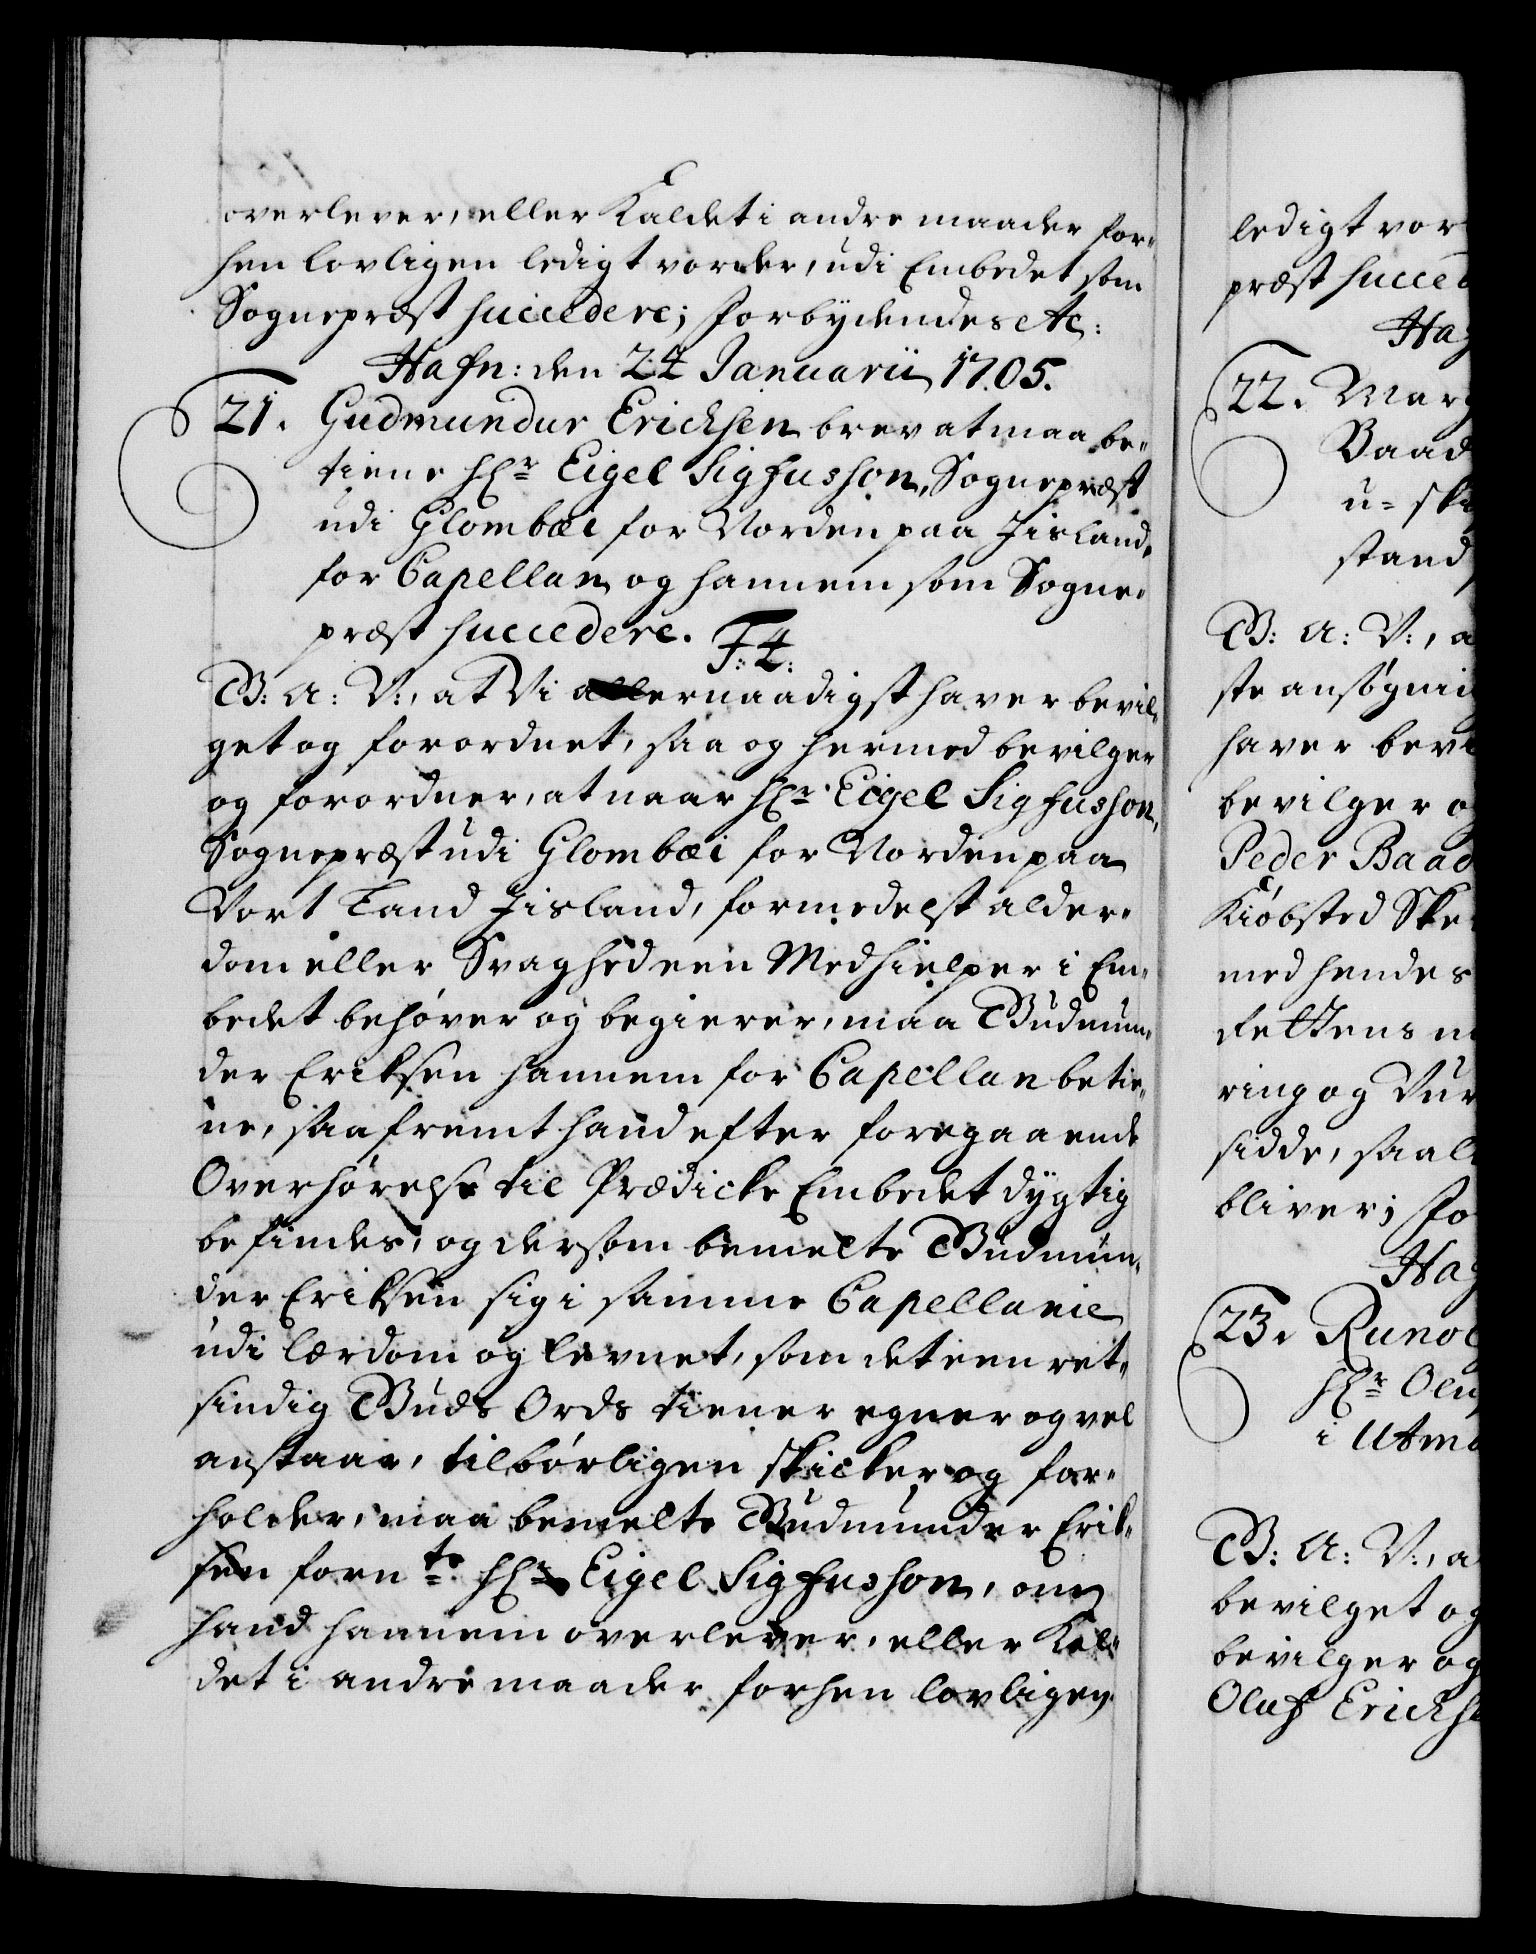 overlever, eller Kaldet i andre maader for-
hen lovligen ledigt vorder, udi Embedet som
Sognepræst succedere; Forbydendes etc:
Hafn: den 24 Januarii 1705.
21. Gudmundur Ericksen brev at maa be-
tiene Hr Eigel Sigfusson, Sognepræst
udi Glombæi for Norden paa Jisland,
for Capellan og hannem som Sogne-
præst succedere.
F: 4:
G: A: V:, at Vi allernaadigst haver bevil-
get og forordnet, saa og hermed bevilger
og forordner, at naar Hr Eigel Sigfusson,
Sognepræst udi Glombæi for Norden paa
Vort Land Jisland, formedelst alder-
dom eller Svaghed een Medhielper i Em-
bedet behøver og begierer, maa Gudmun-
der Eriksen hannem for Capellan betie-
ne, saafremt hand efter foregaaende
Overhørelse til Prædicke Embedet dygtig
befindes, og dersom bemelte Gudmun-
der Eriksen sig i samme Capellanie
udi lærdom og levnet, som det een ret-
sindig Guds Ords tiener egner og vel
anstaar, tilbørligen skicker og for-
holder, maa bemelte Gudmunder Erik-
sen fornte Hr Eigel Sigfusson, om
hand hannem overlever, eller Kal-
det i andre maader forhen lovligen
ledigt vor
præst succed
Haf
22. Marg
Baad
u-ski
stand
G: A: V:, a
ste ansøgnin
haver bevi
bevilger og
Peder Baad
Kiøbsted Ske
med hendes
fettens m
ring og Vur
sidde, saal
bliver; Fo
Haf
23. Runol
Hr Olu
i Utma
G: A: V:, a
bevilget og
bevilger og
Oluf Ericks